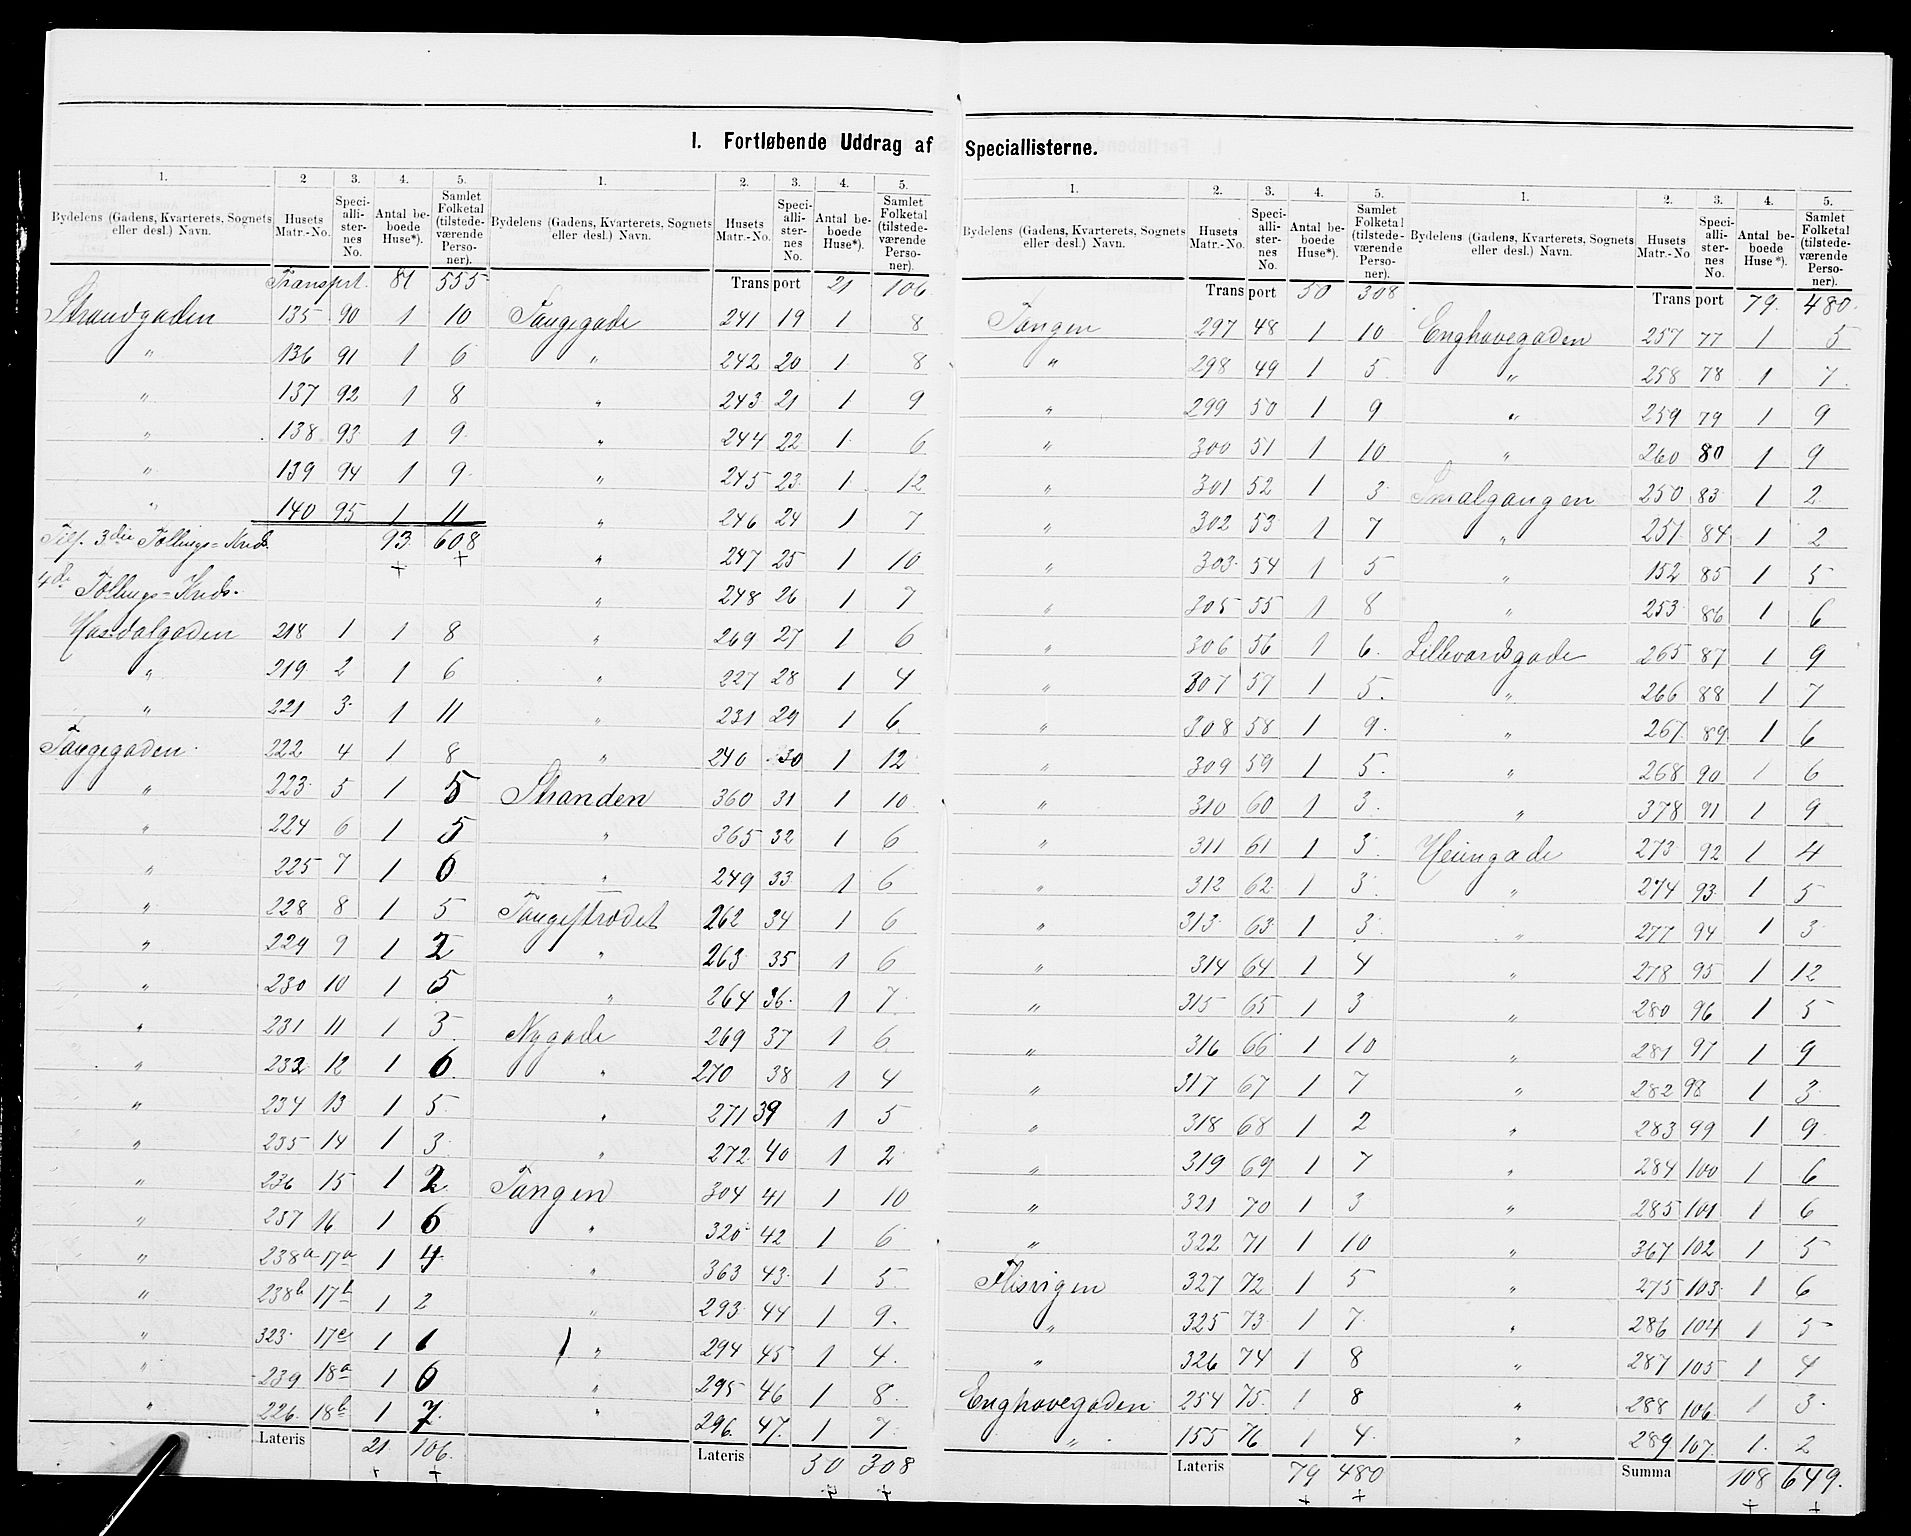 I. Fortløbende Uddrag af Speciallisterne.
1. 2 3. 4. 5. 1. 2. 3. 4. 5.
Bydelens (Gadens, Kvarterets, Sognets eller desl.) Navn. Husets Matr.-No. Speciallisternes No. Antal beboede Huse*). Samlet Folketal (tilstedeværende Personer). Bydelens (Gadens, Kvarterets, Sognets eller desl.) Navn. Husets Matr.-No. Speciallisternes No. Antal beboede Huse*). Samlet Folketal (tilstedeværende Personer).
Transprt. 81 555
Strandgaden 135 90 1 10
" 136 91 1 6
" 137 92 1 8
" 138 93 1 9
" 139 94 1 9
" 140 95 1 11
Til. 3die Tællings-Kreds. 93 608
4de Tællings-Kreds.
218 1 1 8
" 219 2 1 6
" 221 3 1 11
Tangegaden 222 4 1 8
" 223 5 1 5
" 224 6 1 5
" 225 7 1 6
" 228 8 1 5
" 229 9 1 2
" 230 10 1 5
" 231 11 1 3
" 232 12 1 6
" 234 13 1 5
" 235 14 1 3
" 236 15 1 2
" 237 16 1 6
" 238a 17a 1 4
" 238b 17b 1 2
" 323 17c 1 1
" 239 18a 1 6
" 226 18b 1 7
Lateris 21 106
Transport 21 106
Tangegade 241 19 1 8
" 242 20 1 8
" 243 21 1 9
" 244 22 1 6
" 245 23 1 12
" 246 24 1 7
" 247 25 1 10
" 248 26 1 7
" 269 27 1 6
" 227 28 1 4
" 231 29 1 6
" 240 30 1 12
Stranden 360 31 1 10
" 365 32 1 6
" 249 33 1 6
Tangestrædet 262 34 1 6
" 263 35 1 6
" 264 36 1 7
Nygade 269 37 1 6
" 270 38 1 4
" 271 39 1 5
" 272 40 1 2
Tangen 304 41 1 10
" 320 42 1 6
" 363 43 1 5
" 293 44 1 9
" 294 45 1 4
" 295 46 1 8
" 296 47 1 7
Lateris 50 308
1. 2. 3. 4. 5. 1. 2. 3. 4. 5.
Bydelens (Gadens, Kvarterets, Sognets eller desl.) Navn. Husets Matr.-No. Speciallisternes No. Antal beboede Huse*). Samlet Folketal (tilstedeværende Personer). Bydelens (Gadens, Kvarterets, Sognets eller desl.) Navn. Husets Matr.-No. Speciallisternes No. Antal beboede Huse*). Samlet Folketal (tilstedeværende Personer).
Transport 50 308
Tangen 297 48 1 10
" 298 49 1 5
" 299 50 1 9
" 300 51 1 10
" 301 52 1 3
" 302 53 1 7
" 303 54 1 5
" 305 55 1 8
" 306 56 1 6
" 307 57 1 5
" 308 58 1 9
" 309 59 1 5
" 310 60 1 3
" 311 61 1 3
" 312 62 1 3
" 313 63 1 3
" 314 64 1 4
" 315 65 1 3
" 316 66 1 10
" 317 67 1 7
" 318 68 1 2
" 319 69 1 7
" 321 70 1 3
" 322 71 1 10
Flisvigen 327 72 1 5
" 325 73 1 7
" 326 74 1 8
Enghavegaden 254 75 1 8
" 155 76 1 4
Lateris 79 480
Transport 79. 480.
Enghavegaden 257 77 1 5
" 258 78 1 7
" 259 79 1 9
" 260 80 1 9
Smalgangen 250 83 1 2
" 251 84 1 2
" 152 85 1 5
" 253 86 1 6
265 87 1 9
" 266 88 1 7
" 267 89 1 6
" 268 90 1 6
" 378 91 1 9
273 92 1 4
" 274 93 1 5
" 277 94 1 3
" 278 95 1 12
" 280 96 1 5
" 281 97 1 9
" 282 98 1 3
" 283 99 1 9
" 284 100 1 6
" 285 101 1 6
" 367 102 1 5
" 275 103 1 6
" 286 104 1 5
" 287 105 1 4
" 288 106 1 3
" 289 107 1 2
Summa 108 649.